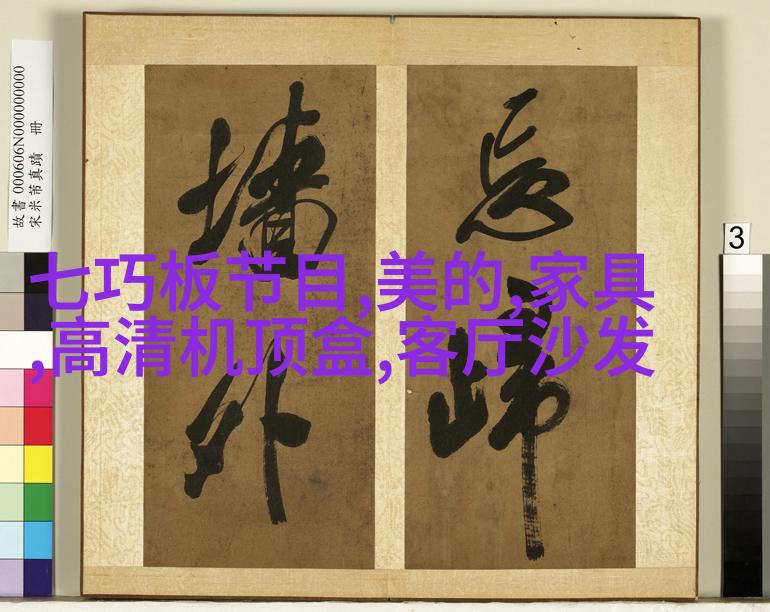 七巧板节目,美的,家具
,高清机顶盒,客厅沙发
故書 000606N000000000
宋米芾真蹟 冊
忘歸
墻外
3